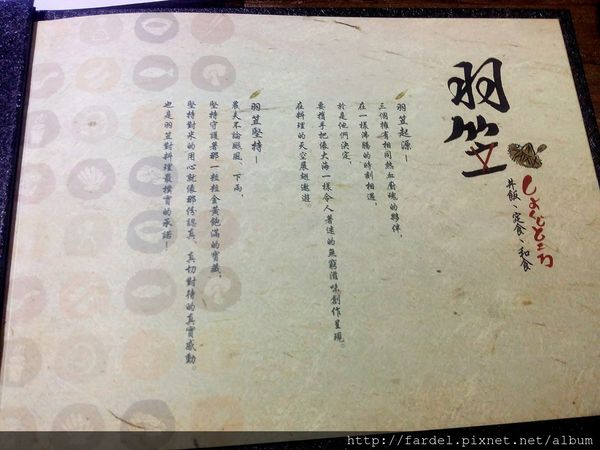 羽笠
しょくどころ
丼飯、定食、和食
羽笠起源－
三個擁有相同熱血廚魂的夥伴，
在一樣沸騰的時刻相遇，
於是他們決定，
要攜手把像大海一樣令人著迷的無窮滋味創作呈現。
在料理的天空展翅遨遊。
羽笠堅持－
農夫不論颱風、下雨，
堅持守護著那一粒粒金黃飽滿的寶藏，
堅持對米的用心就像那份認真，真切對待的真實感動。
也是羽笠對料理最樸實的承諾－
http://fardel.pixnet.net/album